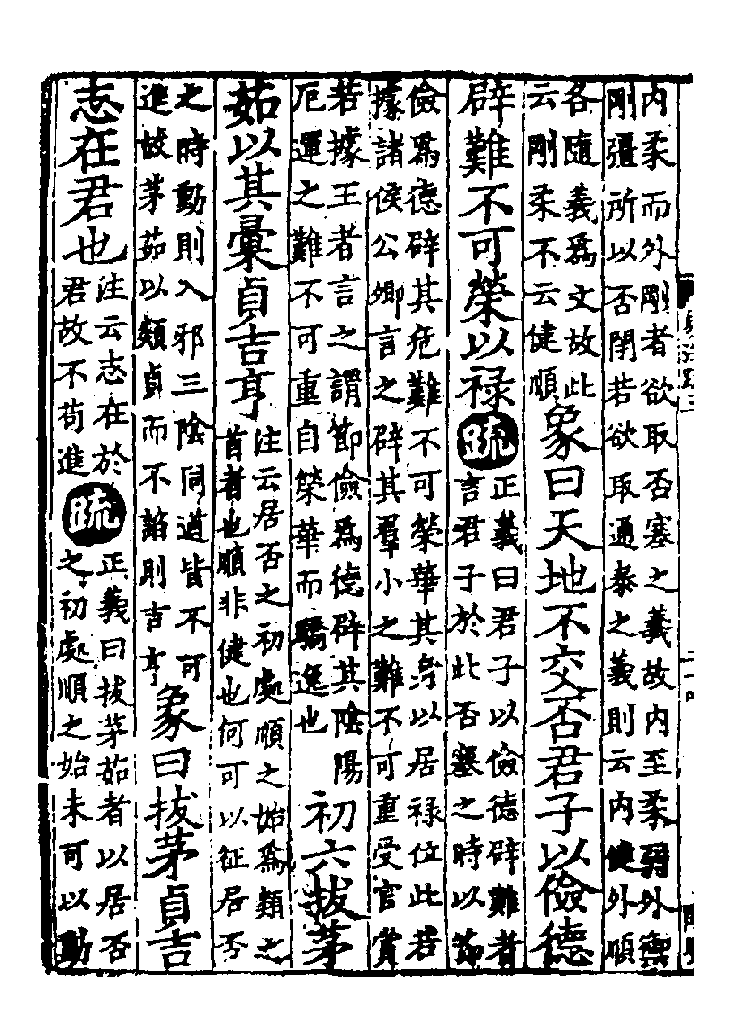 內柔而外剛者欲取否塞之義故內至柔弱外禦
剛彊所以否閉若欲取通泰之義則云內健外順
各隨義爲文故此
云剛柔不云健順
象曰天地不交否君子以儉德
辟難不可榮以祿
疏
正義曰君子以儉德辟難者
言君子於此否塞之時以節
儉爲德辟其危難不可榮華其身以居祿位此若
據諸侯公卿言之辟其羣小之難不可重受官賞
若據王者言之謂節儉爲德辟其陰陽
厄運之難不可重自榮華而驕逸也
初六拔茅
茹以其彙貞吉亨
注云居否之初處順之始爲類之
首者也順非健也何可以征居否
之時動則入邪三陰同道皆不可
進故茅茹以類貞而不諂則吉亨
象曰拔茅貞吉
志在君也
注云志在於
君故不苟進
疏
正義曰拔茅茹者以居否
之初處順之始未可以動